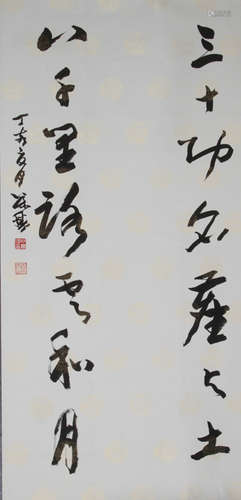 三十功名尘与土
八千里路云和月
丁亥夏月